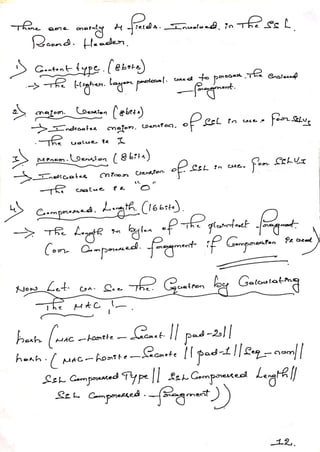 There are mainly 4 fields. Involved. in The SSL.
Record. Header.
1) Content type. (8 bits)
→ The Higher. layer protocol. used to process. The Enclosed
fragment.
2) major. Version (8 bits)
→ Indicates major. version. of SSL in use. For SSLV3
The value is 3
3) Minor. Version (8 bits)
→ Indicates minor version of SSL in use. for SSLV3
The value is "0"
4) Compressed. Length (16 bits).
→ The Length in bytes of The plaintext fragment.
(or Compressed. fragment if Compression is used)
Now Let us. See The. Equation by Calculating
The MAC !-
hash (MAC-write-Secret || pad-2 ||
hash. (MAC-write-Secrete || pad-1 || Seq-num ||
SSL Compressed Type || SSL Compressed Length ||
SSL Compressed. fragment))
12.